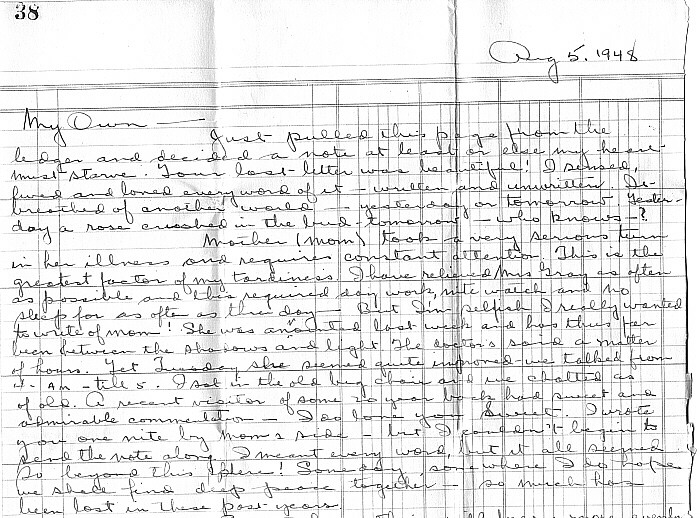 38
Aug 5, 1948
My Own —
Just pulled this page from the
ledger and decided a note at least or else my heart
must starve. Your last letter was beautiful! I sensed,
lived and loved every word of it – written and unwritten. It
breathed of another world — yesterday or tomorrow. Yester-
day a rose crushed in the bud – tomorrow – who knows –?
Mother (Mom) took a very serious turn
in her illness and requires constant attention. This is the
greatest factor of my tardiness. I have relieved Mrs Gray as often
as possible and this required day work, nite watch and no
sleep for as often as third day – But I'm selfish I really wanted
to write of mom! She was anointed last week and has thus far
been between the shadows and light. The doctors said a matter
of hours. Yet Tuesday she seemed quite improved – we talked from
AM – till 5. I sat in the old big chair and we chatted as
of old. A recent visitor of some 20 year back had sweet and
admirable commentation – I do love you Sweet. I wrote
you one nite by Mom's side – but I couldn't begin to
send the note along. I meant every word, but it all seemed
so beyond this sphere! Someday, somewhere I do hope
we shall find deep peace together – so much has
been lost in these past years.